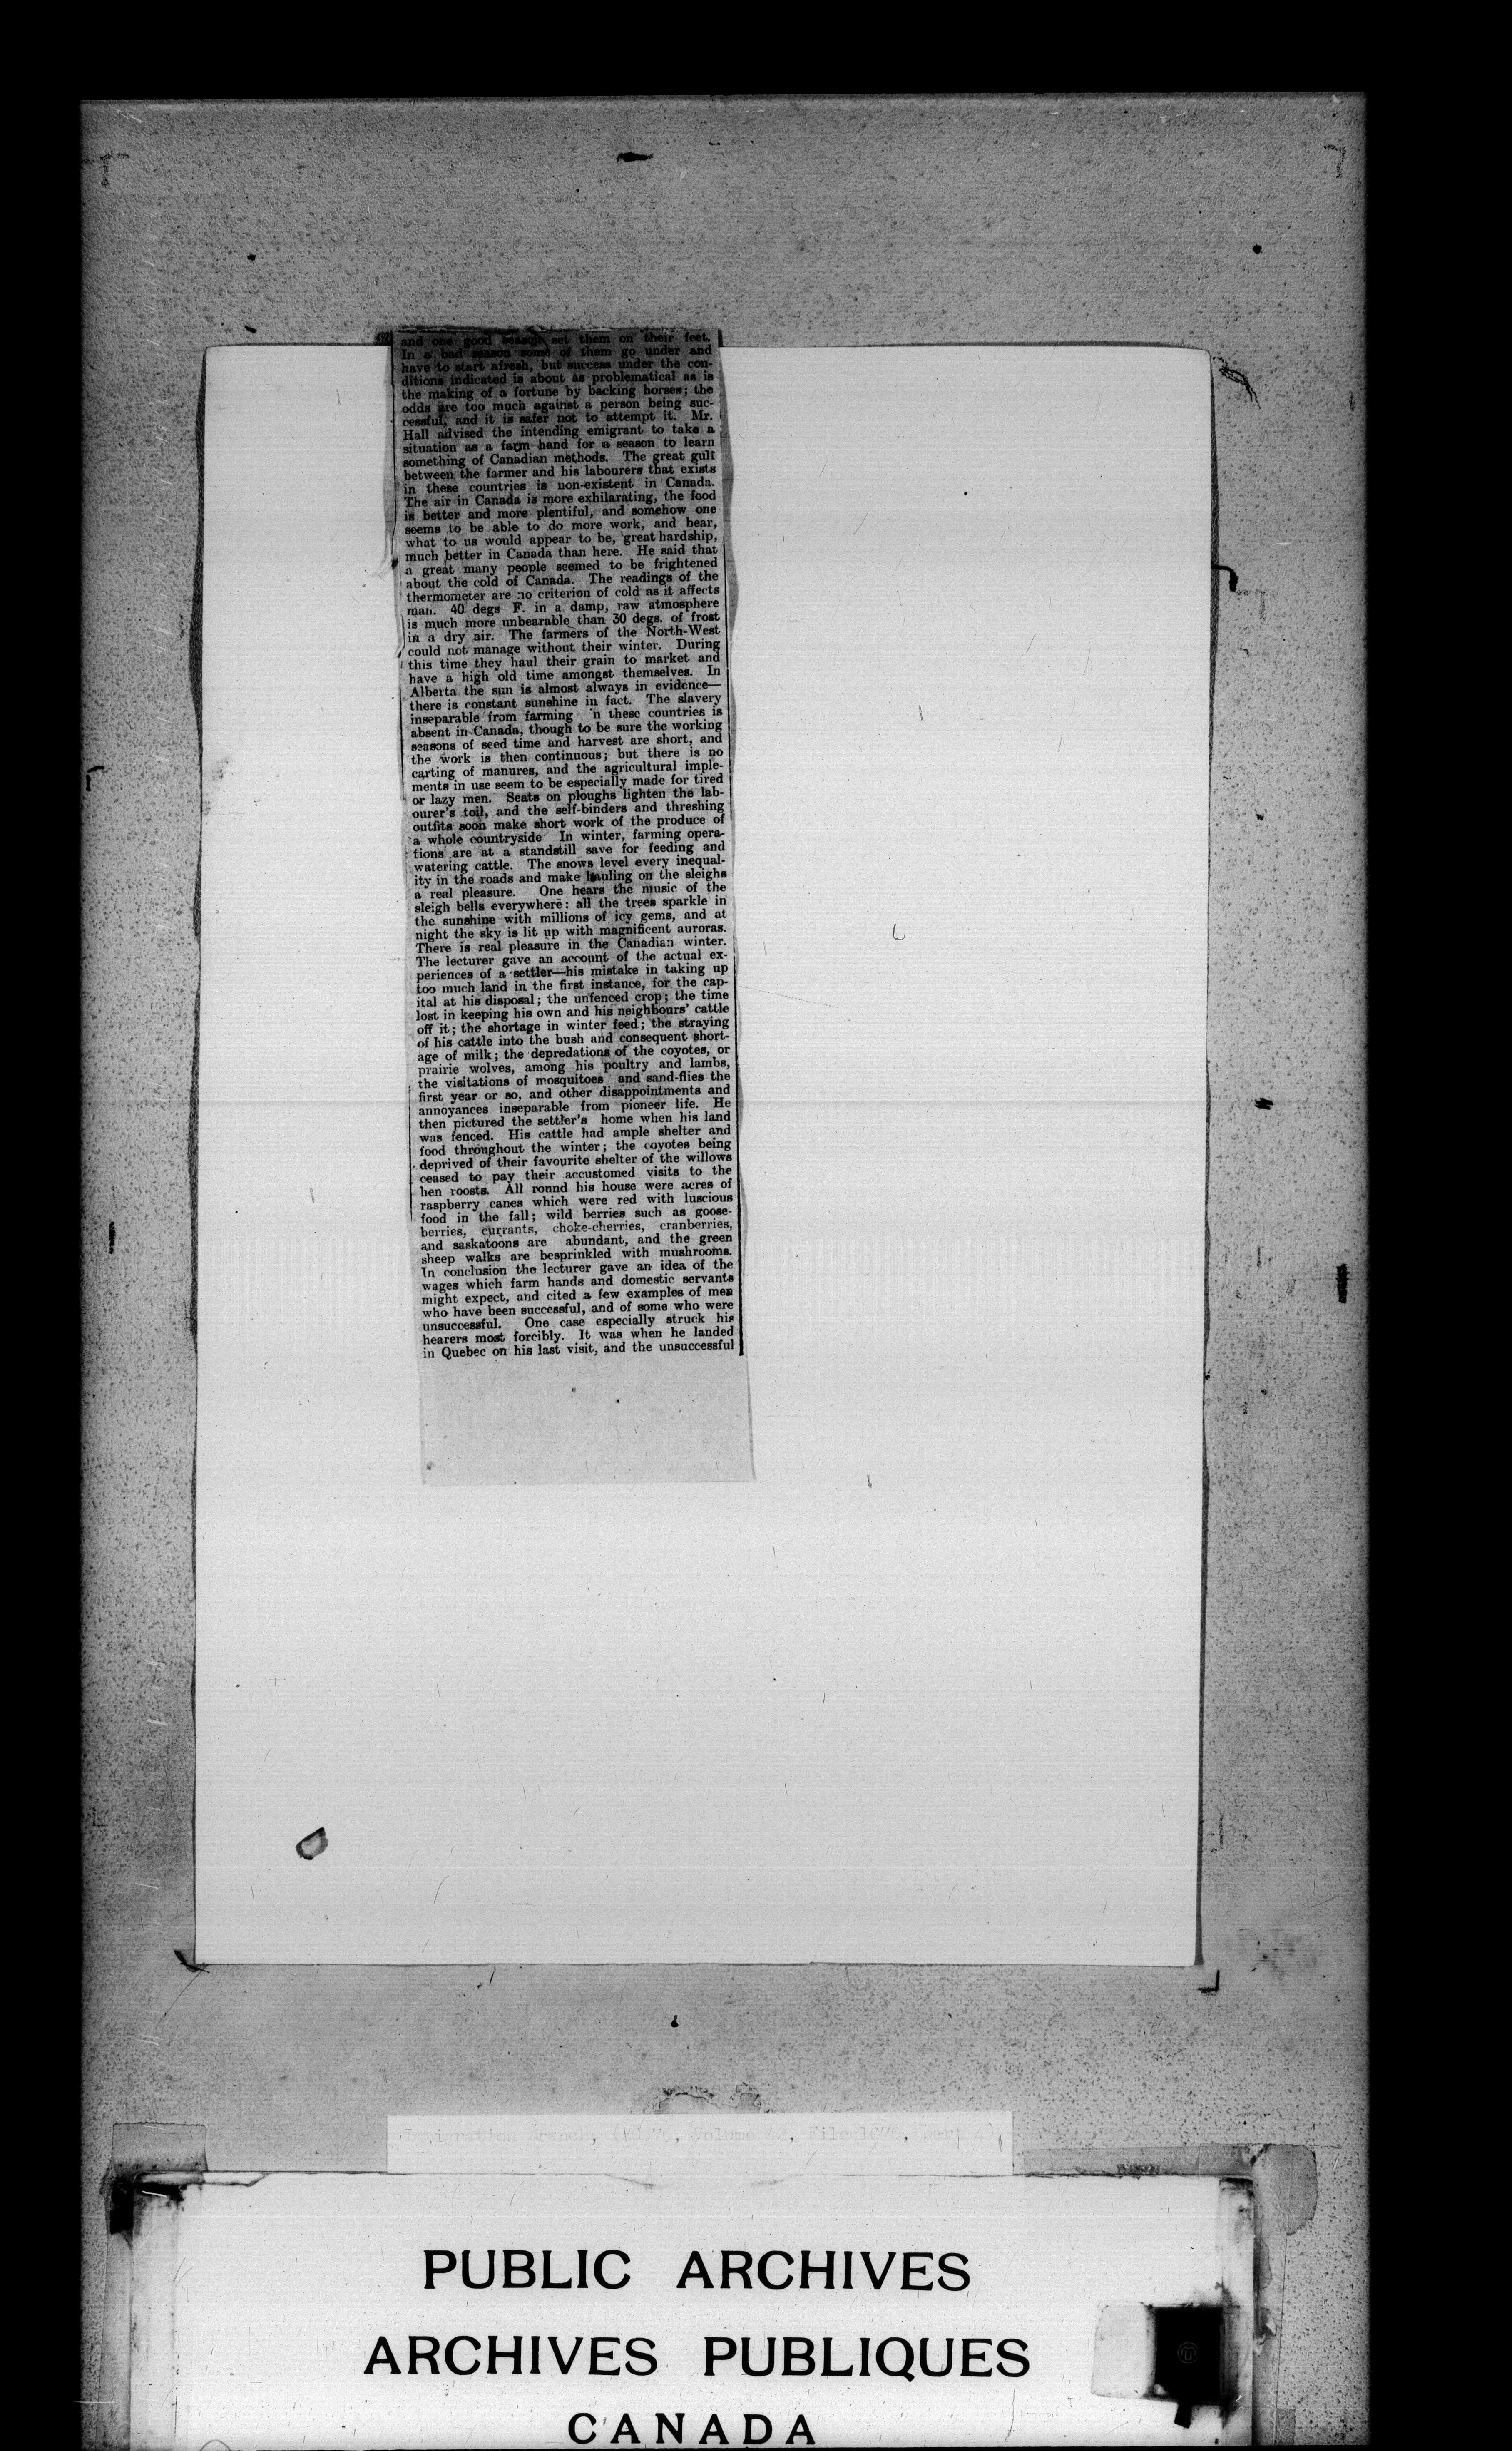 and one good season set them on their feet.
In a bad season some of them go under and
have to start afresh, but success under the con-
ditions indicated is about as problematical as is
the making of a fortune by backing horses; the
odds are too much against a person being suc-
cessful, and it is safer not to attempt it. Mr.
Hall advised the intending emigrant to take a
situation as a farm hand for a season to learn
something of Canadian methods. The great gulf
between the farmer and his labourers that exists
in these countries is non-existent in Canada.
The air in Canada is more exhilarating, the food
is better and more plentiful, and somehow one
seems to be able to do more work, and bear,
what to us would appear to be, great hardship,
much better in Canada than here. He said that
a great many people seemed to be frightened
about the cold of Canada. The readings of the
thermometer are no criterion of cold as it affects
man. 40 degs F. in a damp, raw atmosphere
is much more unbearable than 30 degs. of frost
in a dry air. The farmers of the North-West
could not manage without their winter. During
this time they haul their grain to market and
have a high old time amongst themselves. In
Alberta the sun is almost always in evidence—
there is constant sunshine in fact. The slavery
inseparable from farming 'n these countries is
absent in Canada, though to be sure the working
seasons of seed time and harvest are short, and
the work is then continuous; but there is no
carting of manures, and the agricultural imple-
ments in use seem to be especially made for tired
or lazy men. Seats on ploughs lighten the lab-
ourer's toil, and the self-binders and threshing
outfits soon make short work of the produce of
a whole countryside In winter, farming opera-
tions are at a standstill save for feeding and
watering cattle. The snows level every inequal-
ity in the roads and make hauling on the sleighs
a real pleasure. One hears the music of the
sleigh bells everywhere: all the trees sparkle in
the sunshine with millions of icy gems, and at
night the sky is lit up with magnificent auroras.
There is real pleasure in the Canadian winter.
The lecturer gave an account of the actual ex-
periences of a settler—his mistake in taking up
too much land in the first instance, for the cap-
ital at his disposal; the unfenced crop; the time
lost in keeping his own and his neighbours' cattle
off it; the shortage in winter feed; the straying
of his cattle into the bush and consequent short-
age of milk; the depredations of the coyotes, or
prairie wolves, among his poultry and lambs,
the visitations of mosquitoes and sand-flies the
first year or so, and other disappointments and
annoyances inseparable from pioneer life. He
then pictured the settler's home when his land
was fenced. His cattle had ample shelter and
food throughout the winter; the coyotes being
deprived of their favourite shelter of the willows
ceased to pay their accustomed visits to the
hen roosts. All round his house were acres of
raspberry canes which were red with luscious
food in the fall; wild berries such as goose-
berries, currants, choke-cherries, cranberries,
and saskatoons are abundant, and the green
sheep walks are besprinkled with mushrooms.
In conclusion the lecturer gave an idea of the
wages which farm hands and domestic servants
might expect, and cited a few examples of men
who have been successful, and of some who were
unsuccessful. One case especially struck his
hearers most forcibly. It was when he landed
in Quebec on his last visit, and the unsuccessful
Immigration Branch, (RG 76, Volume 42, File 1070, part 4)
PUBLIC ARCHIVES
ARCHIVES PUBLIQUES
CANADA